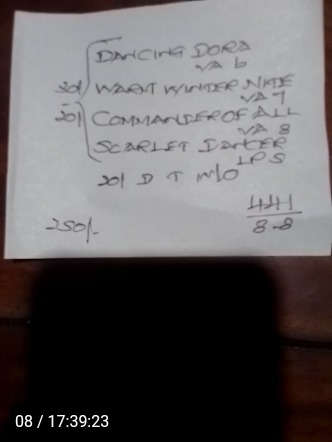 DANCING DORA
VA 6
30/ WARM WINTER NITE
VA 7
20/ COMMANDER OF ALL
VA 8
SCARLET DANCER
LPS
20/ D T M/O
441
250/- 8-8
08 / 17:39:23